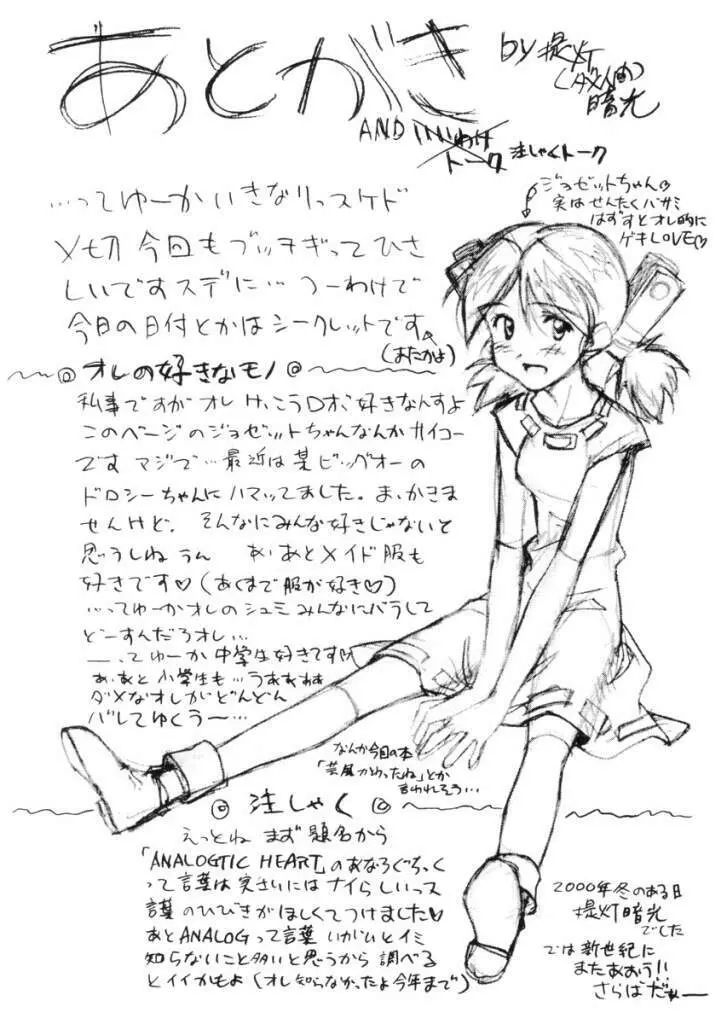 あとがき
by 提灯
(ダメ人間)
暗光
AND いいわけ
トーク 注しゃくトーク
ジョゼットちゃん♡
実はせんたくバサミ
はずすとオレ的に
ゲキLOVE♡
…ってゆーか いきなりっスケド
〆切 今回も ブッチギって ひさ
しいです スデに… つーわけで
今日の日付とかはシークレットです。
(またかよ)
◎ オレの好きなモノ ◎
私事ですが オレ けっこうロボ 好きなんすよ
このページのジョゼットちゃんなんか サイコー
です マジで … 最近は某ビッグオーの
ドロシーちゃんにハマッてました。ま、かきま
せんけど。 そんなにみんな好きじゃないと
思うしね うん あ、あとメイド服も
好きです♡(あくまで服が好き♡)
…ってゆーかオレのシュミ みんなにバラして
どーすんだろオレ…
――ってゆーか 中学生好きです♡
あ、あと 小学生も…うああああ
ダメなオレがどんどん
バレてゆくぅ〜…
なんか今回の本
「芸風かわったね」とか
言われそう…
◎ 注しゃく ◎
えっとね まず 題名から
「ANALOGTIC HEART」のあなろぐちっく
って言葉は実さいには ナイらしいっス
言葉のひびきがほしくてつけました♡
あとANALOGって言葉 いがいとイミ
知らないこと多いと思うから 調べる
とイイかもよ (オレ知らなかったよ今年まで)
2000年冬のある日
提灯暗光
でした
では 新世紀に
またあおう!!
さらばだぁー